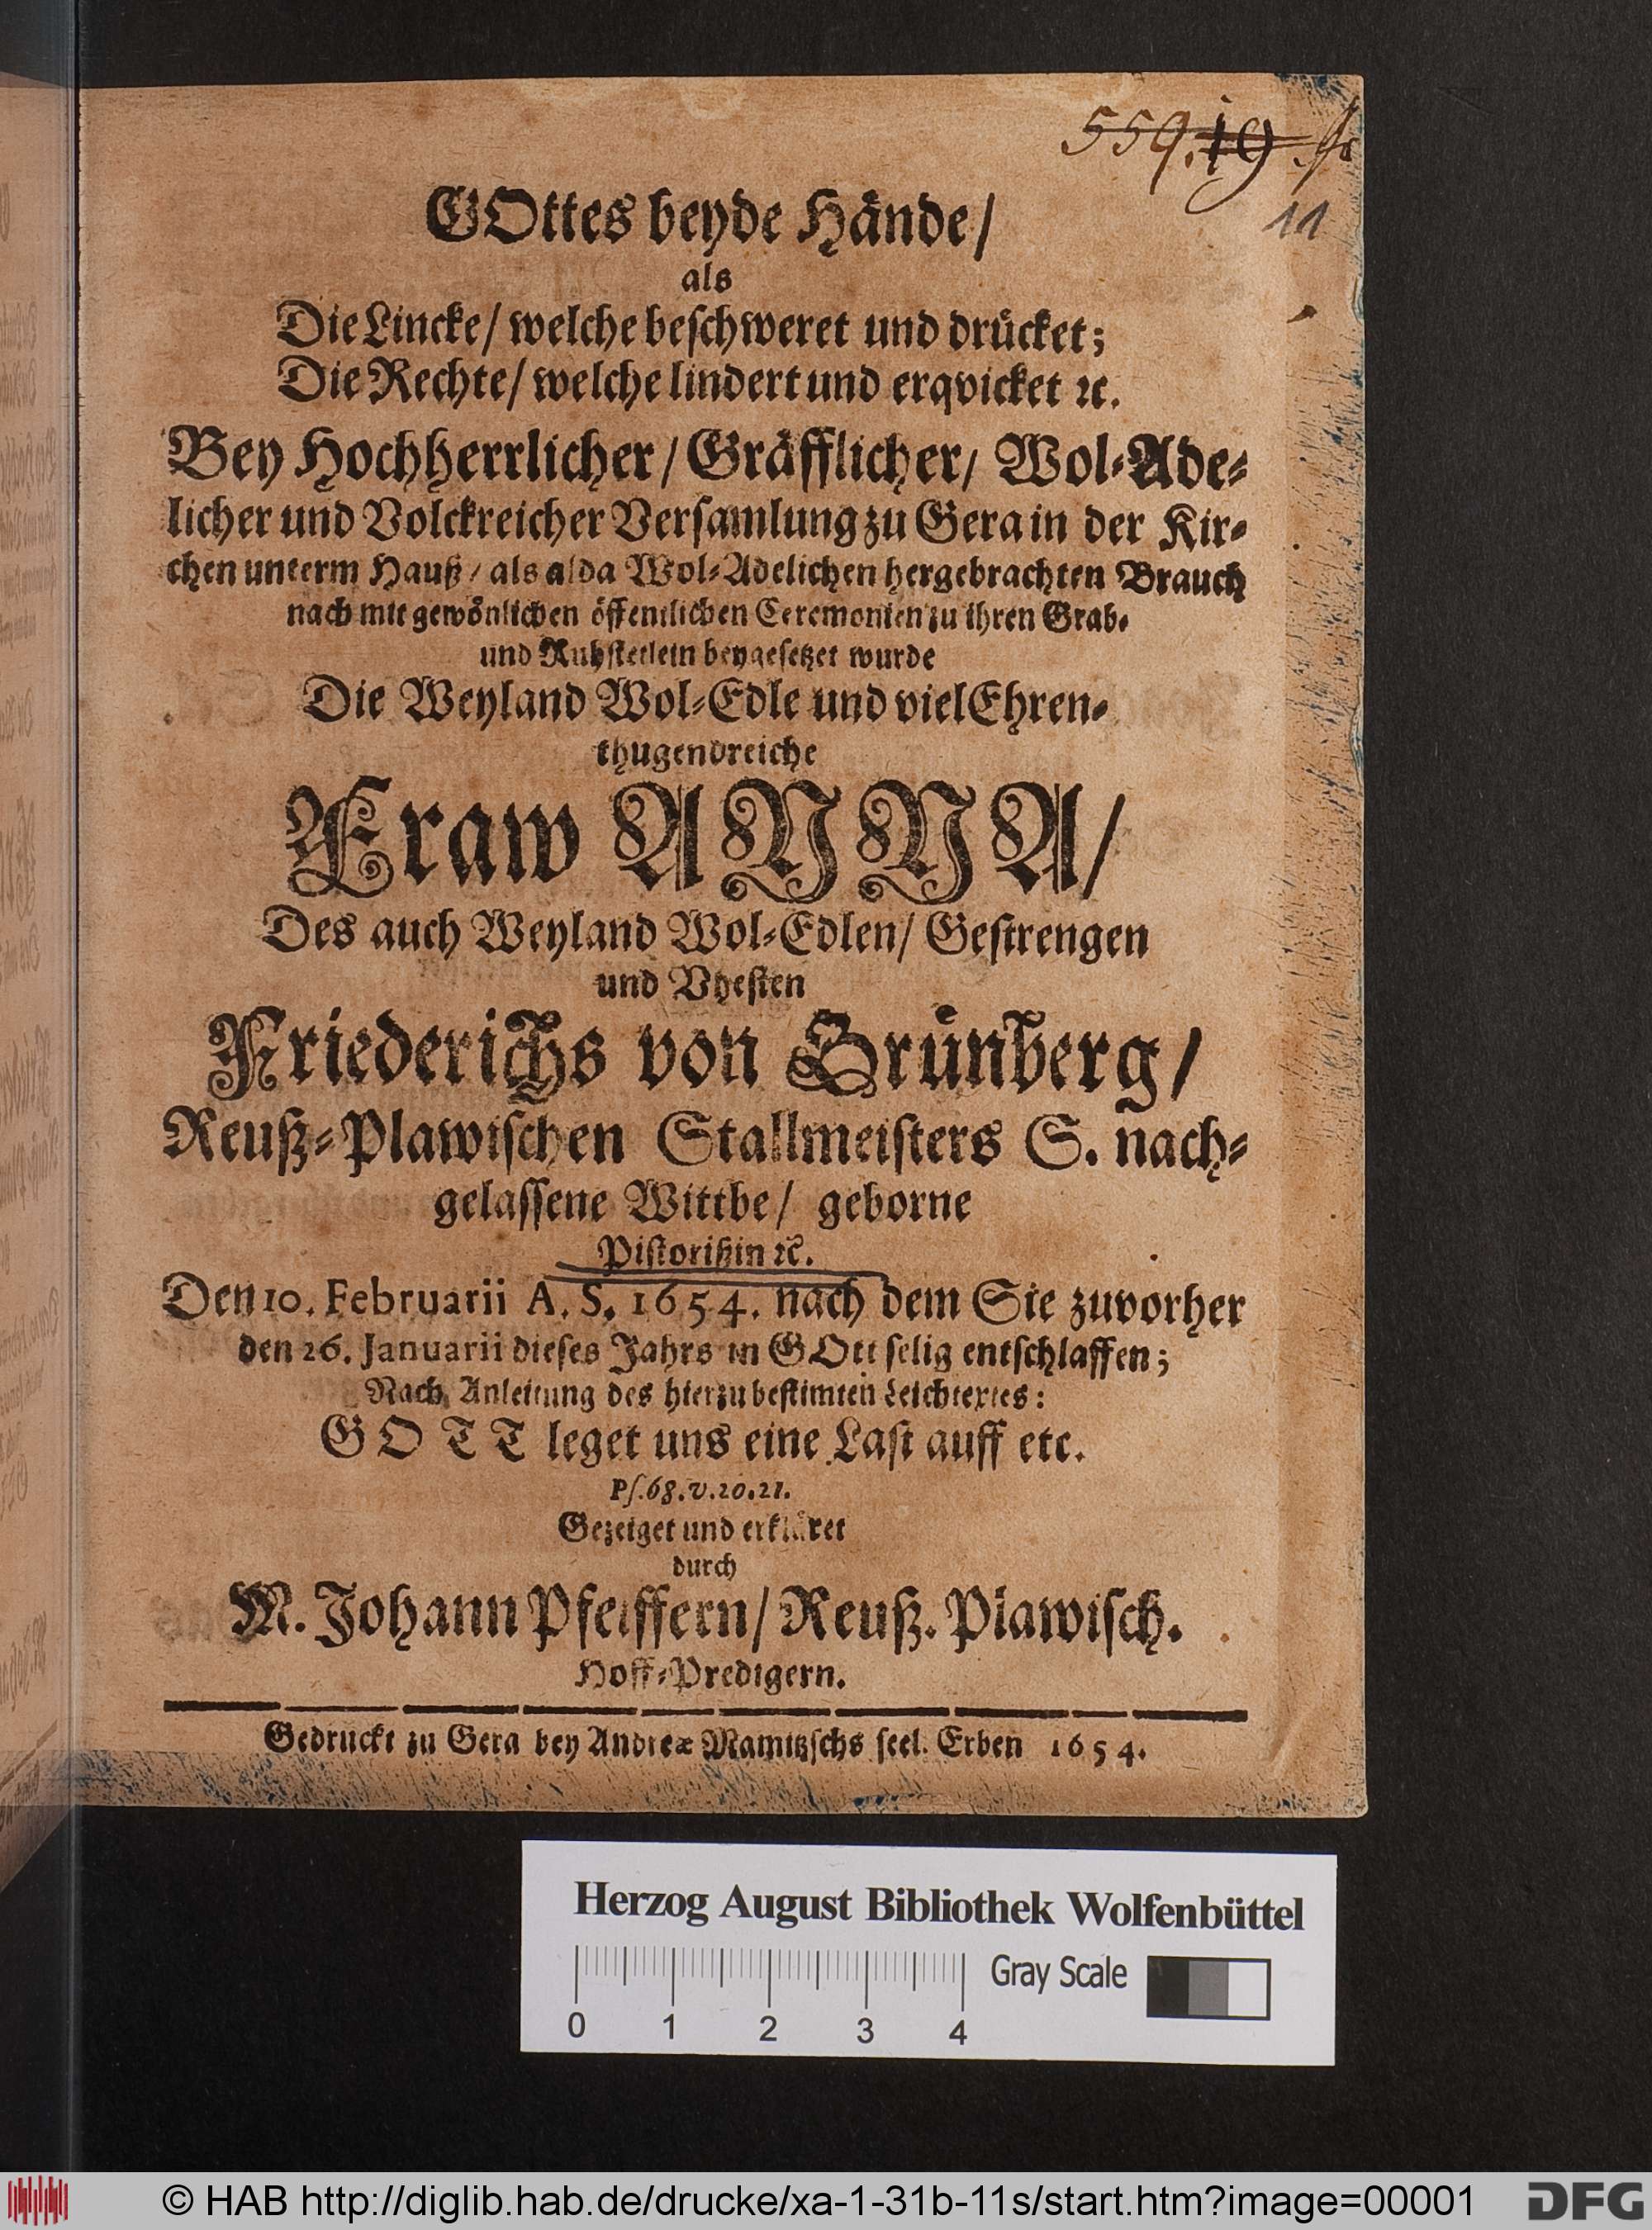 559.19
11
GOttes beyde Hände/
als
Die Lincke/ welche beschweret und drücket;
Die Rechte/ welche lindert und erqvicket ꝛc.
Bey Hochherrlicher/ Gräfflicher/ Wol-Ade-
licher und Volckreicher Versamlung zu Gera in der Kir-
chen unterm Hauß/ als alda Wol-Adelichen hergebrachten Brauch
nach mit gewönlichen öffentlichen Ceremonien zu ihren Grab-
und Ruhstetlein beygesetzet wurde
Die Weyland Wol-Edle und viel Ehren-
thugendreiche
Fraw ANNA/
Des auch Weyland Wol-Edlen/ Gestrengen
und Vhesten
Friederichs von Grünberg/
Reuß-Plawischen Stallmeisters S. nach-
gelassene Wittbe/ geborne
Pistorißin ꝛc.
Den 10. Februarii A. S. 1654. nach dem Sie zuvorher
den 26. Januarii dieses Jahrs in GOtt selig entschlaffen;
Nach Anleitung des hierzu bestimten Leichtextes:
GOTT leget uns eine Last auff etc.
Ps. 68. v. 20. 21.
Gezeiget und erkläret
durch
M. Johann Pfeiffern/ Reuß. Plawisch.
Hoff-Predigern.
Gedruckt zu Gera bey Andreæ Mamitzschs seel. Erben 1654.
Herzog August Bibliothek Wolfenbüttel
Gray Scale
0 1 2 3 4
© HAB http://diglib.hab.de/drucke/xa-1-31b-11s/start.htm?image=00001
DFG